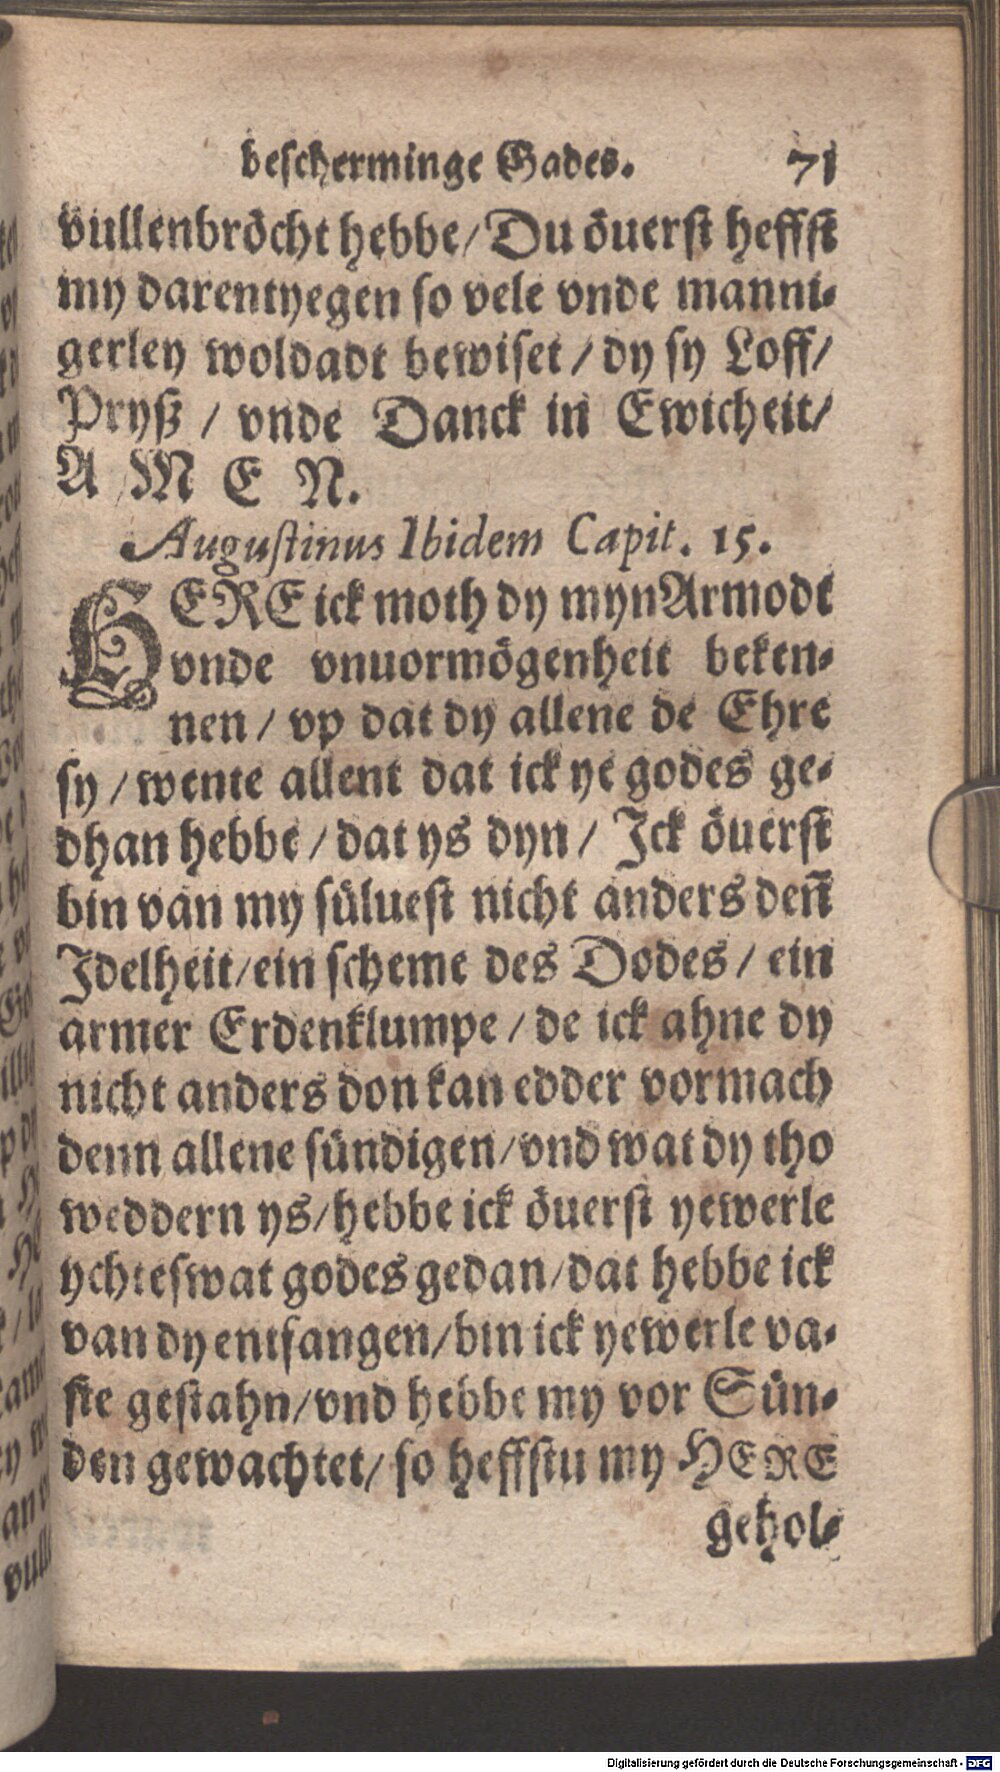 bescherminge Gades. 71
vullenbröcht hebbe/ Du öuerst heffst
my darentyegen so vele vnde manni-
gerley woldadt bewiset / dy sy Loff/
Pryß / vnde Danck in Ewicheit/
A M E N.
Augustinus Ibidem Capit. 15.
HERE ick moth dy myn Armodt
vnde vnuormögenheit beken-
nen / vp dat dy allene de Ehre
sy / wente allent dat ick ye godes ge-
dhan hebbe / dat ys dyn / Ick öuerst
bin van my süluest nicht anders deñ
Idelheit/ ein scheme des Dodes / ein
armer Erdenklumpe / de ick ahne dy
nicht anders don kan edder vormach
denn allene sündigen/ vnd wat dy tho
weddern ys/ hebbe ick öuerst yewerle
ychteswat godes gedan/ dat hebbe ick
van dy entfangen/ bin ick yewerle va-
ste gestahn/ vnd hebbe my vor Sün-
den gewachtet/ so heffstu my HERE
gehol-
Digitalisierung gefördert durch die Deutsche Forschungsgemeinschaft - DFG